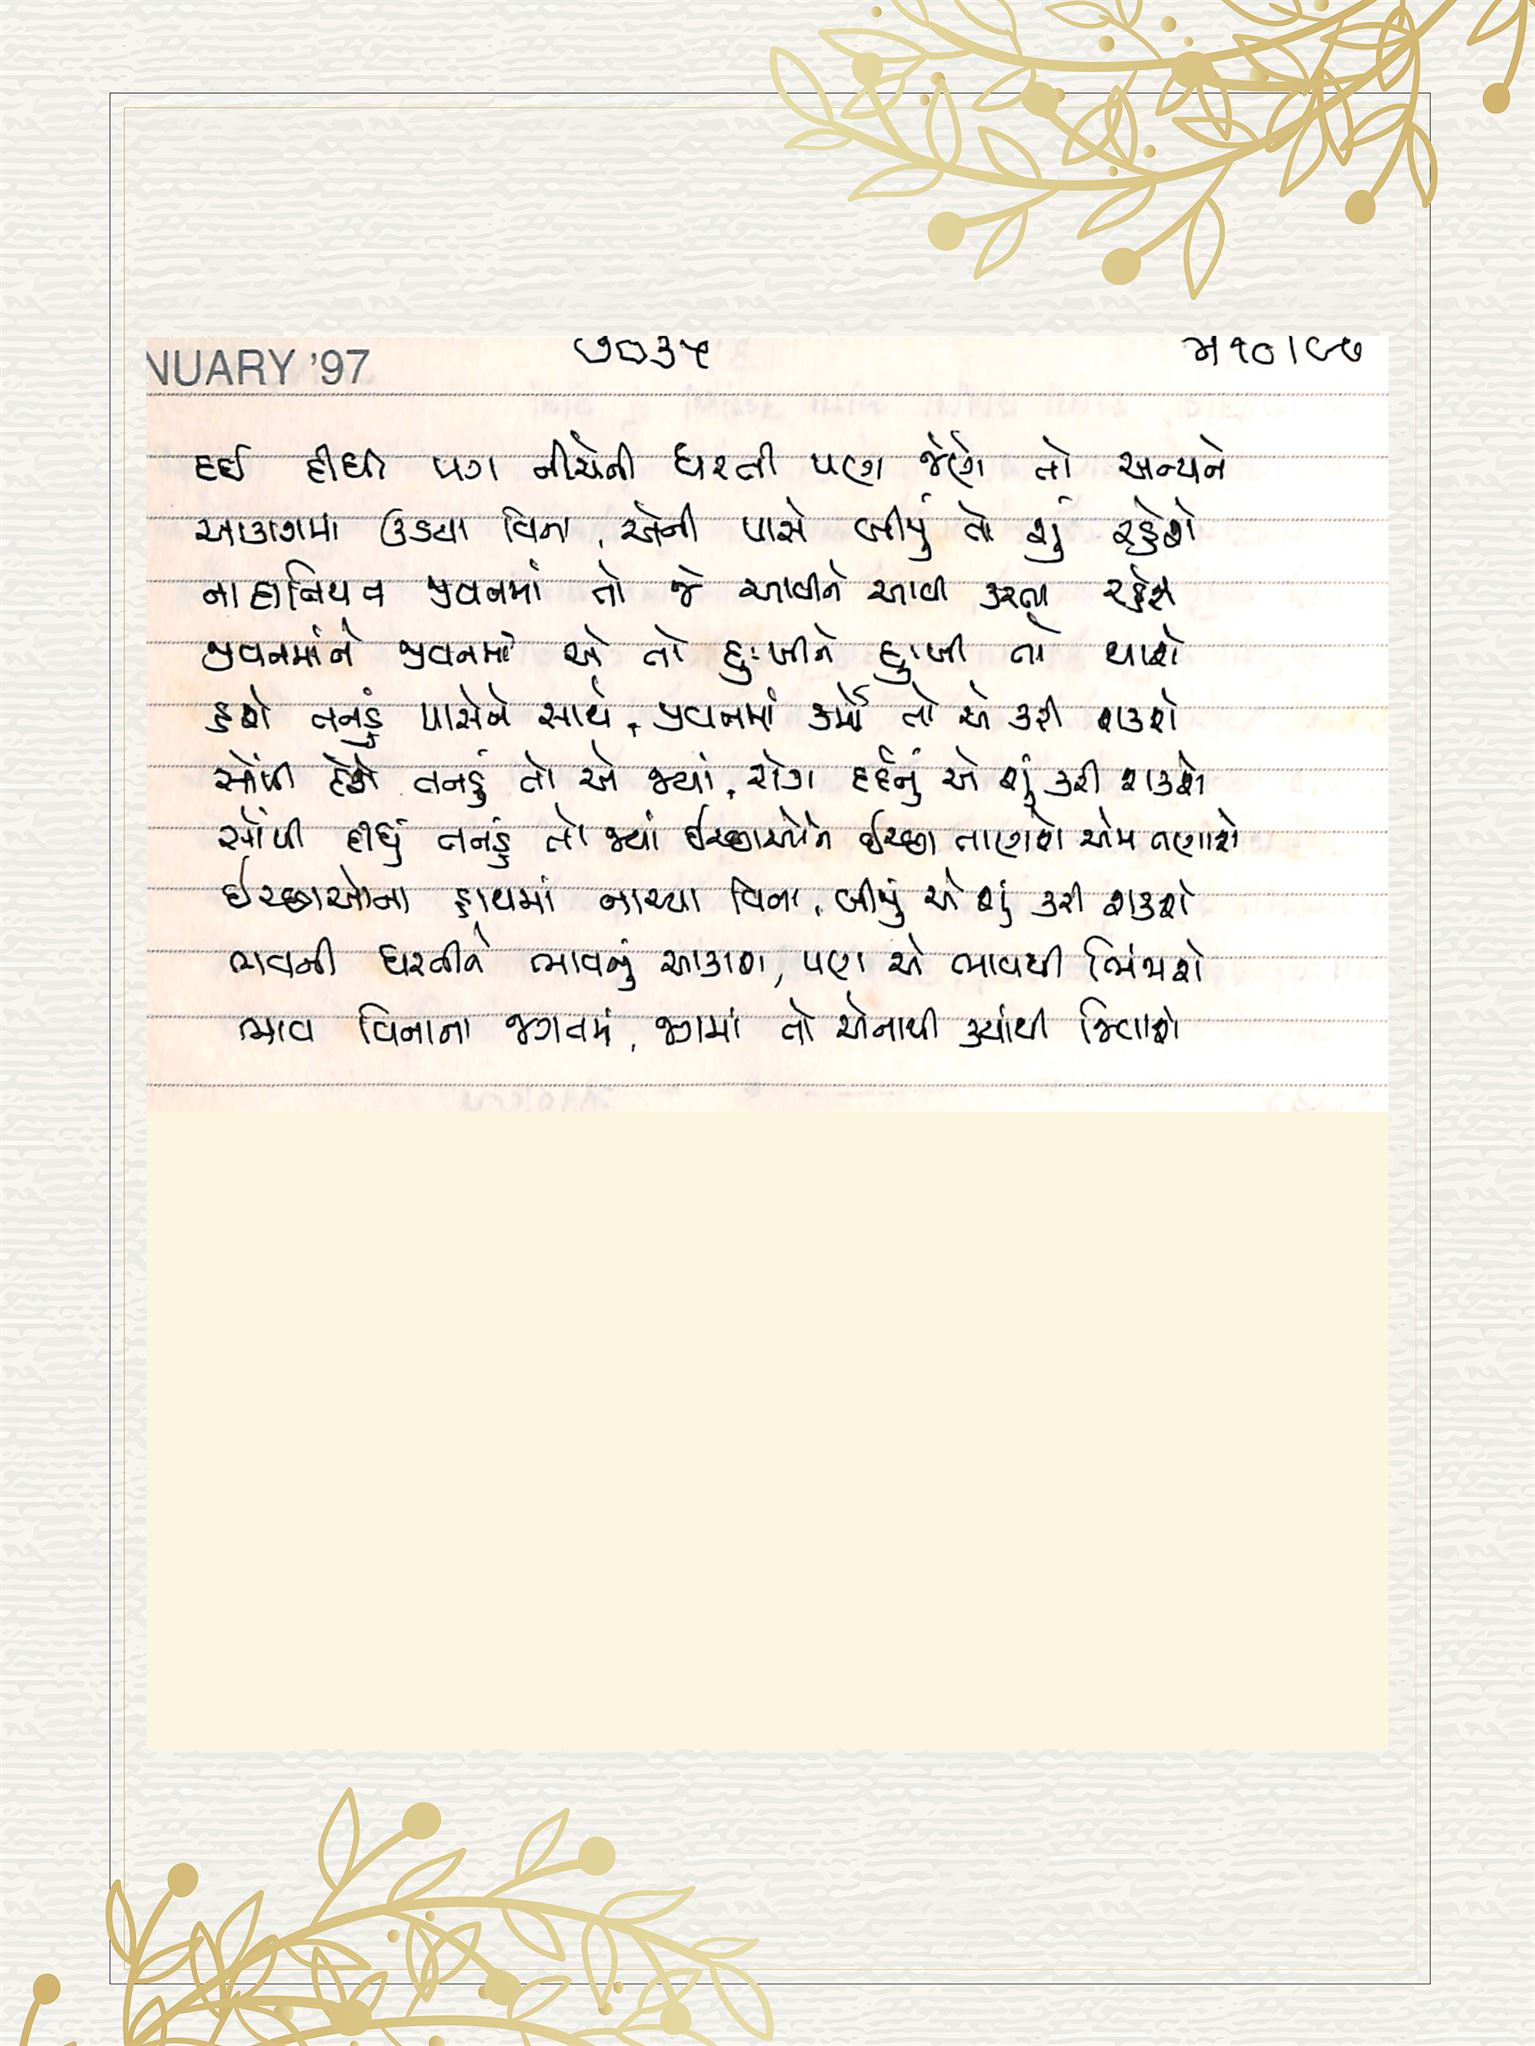 NUARY '97
૭૦૩૫
દઈ દીધી પગ નીચેની ધરતી પણ જેણે તો અન્યને
આકાશમાં ઉડયા વિના, એની પાસે બીજું તો શું રહેશે
નાદાનિયત જીવનમાં તો જે આવીને આવી કરતા રહેશે
જીવનમાંને જીવનમાં એ તો દુઃખીને દુઃખી તો થાશે
હશે તનડું પાસેને સાથે, જીવનમાં કર્મો તો એ કરી શકશે
સોંપી દેશે તનડું તો એ જ્યાં, રોગ દર્દનું એ શું કરી શકશે
સોંપી દીધું તનડું તો જ્યાં ઈચ્છાઓને ઈચ્છા તાણશે એમ તણાશે
ઈચ્છાઓના હાથમાં નાચ્યા વિના, બીજું એ શું કરી શકશે
ભાવની ધરતીને ભાવનું આકાશ, પણ એ ભાવથી ભિંજાશે
ભાવ વિનાના જગતમાં, જગમાં તો એનાથી ક્યાંથી જિવાશે